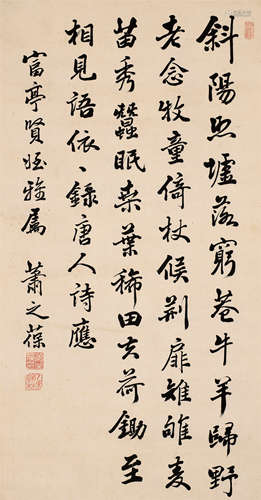 斜陽照墟落窮巷牛羊歸野
老念牧童倚杖候荊扉雉雊麥
苗秀蠶眠桑葉稀田夫荷鋤至
相見語依〻錄唐人詩應
富亭賢姪雅屬 蕭之葆